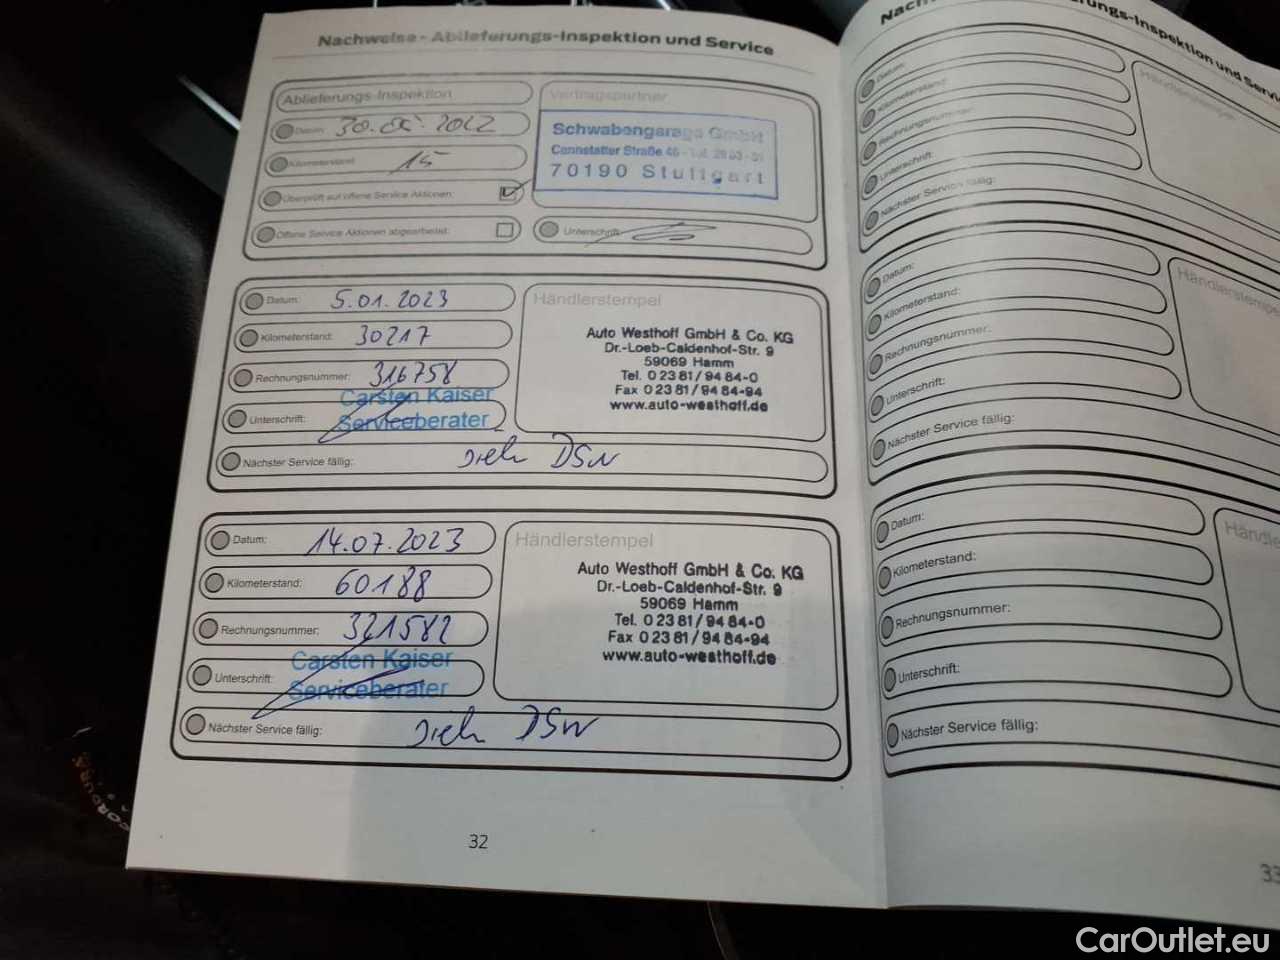 Nachweise - Ablieferungs-Inspektion und Service
Ablieferungs-Inspektion
Vertragspartner
Datum: 30. 2022
Schwabengarage GmbH
Cannstatter Straße 46
70190 Stuttgart
Kilometerstand: 15
Überprüft auf offene Service Aktionen:
Offene Service Aktionen abgearbeitet:
Unterschrift:
Datum: 5.01.2023
Kilometerstand: 30217
Rechnungsnummer: 316758
Unterschrift:
Carsten Kaiser
Serviceberater
Nächster Service fällig: Sieh DSN
Händlerstempel
Auto Westhoff GmbH & Co. KG
Dr.-Loeb-Caldenhof-Str. 9
59069 Hamm
Tel. 0 23 81 / 94 84-0
Fax 0 23 81 / 94 84-94
www.auto-westhoff.de
Datum: 14.07.2023
Kilometerstand: 60188
Rechnungsnummer: 321582
Unterschrift:
Carsten Kaiser
Serviceberater
Nächster Service fällig: Sieh DSN
Händlerstempel
Auto Westhoff GmbH & Co. KG
Dr.-Loeb-Caldenhof-Str. 9
59069 Hamm
Tel. 0 23 81 / 94 84-0
Fax 0 23 81 / 94 84-94
www.auto-westhoff.de
32
Datum:
Kilometerstand:
Rechnungsnummer:
Unterschrift:
Nächster Service fällig:
Händlerstempel
Datum:
Kilometerstand:
Rechnungsnummer:
Unterschrift:
Nächster Service fällig:
Händlerstempel
Datum:
Kilometerstand:
Rechnungsnummer:
Unterschrift:
Nächster Service fällig:
33
CarOutlet.eu